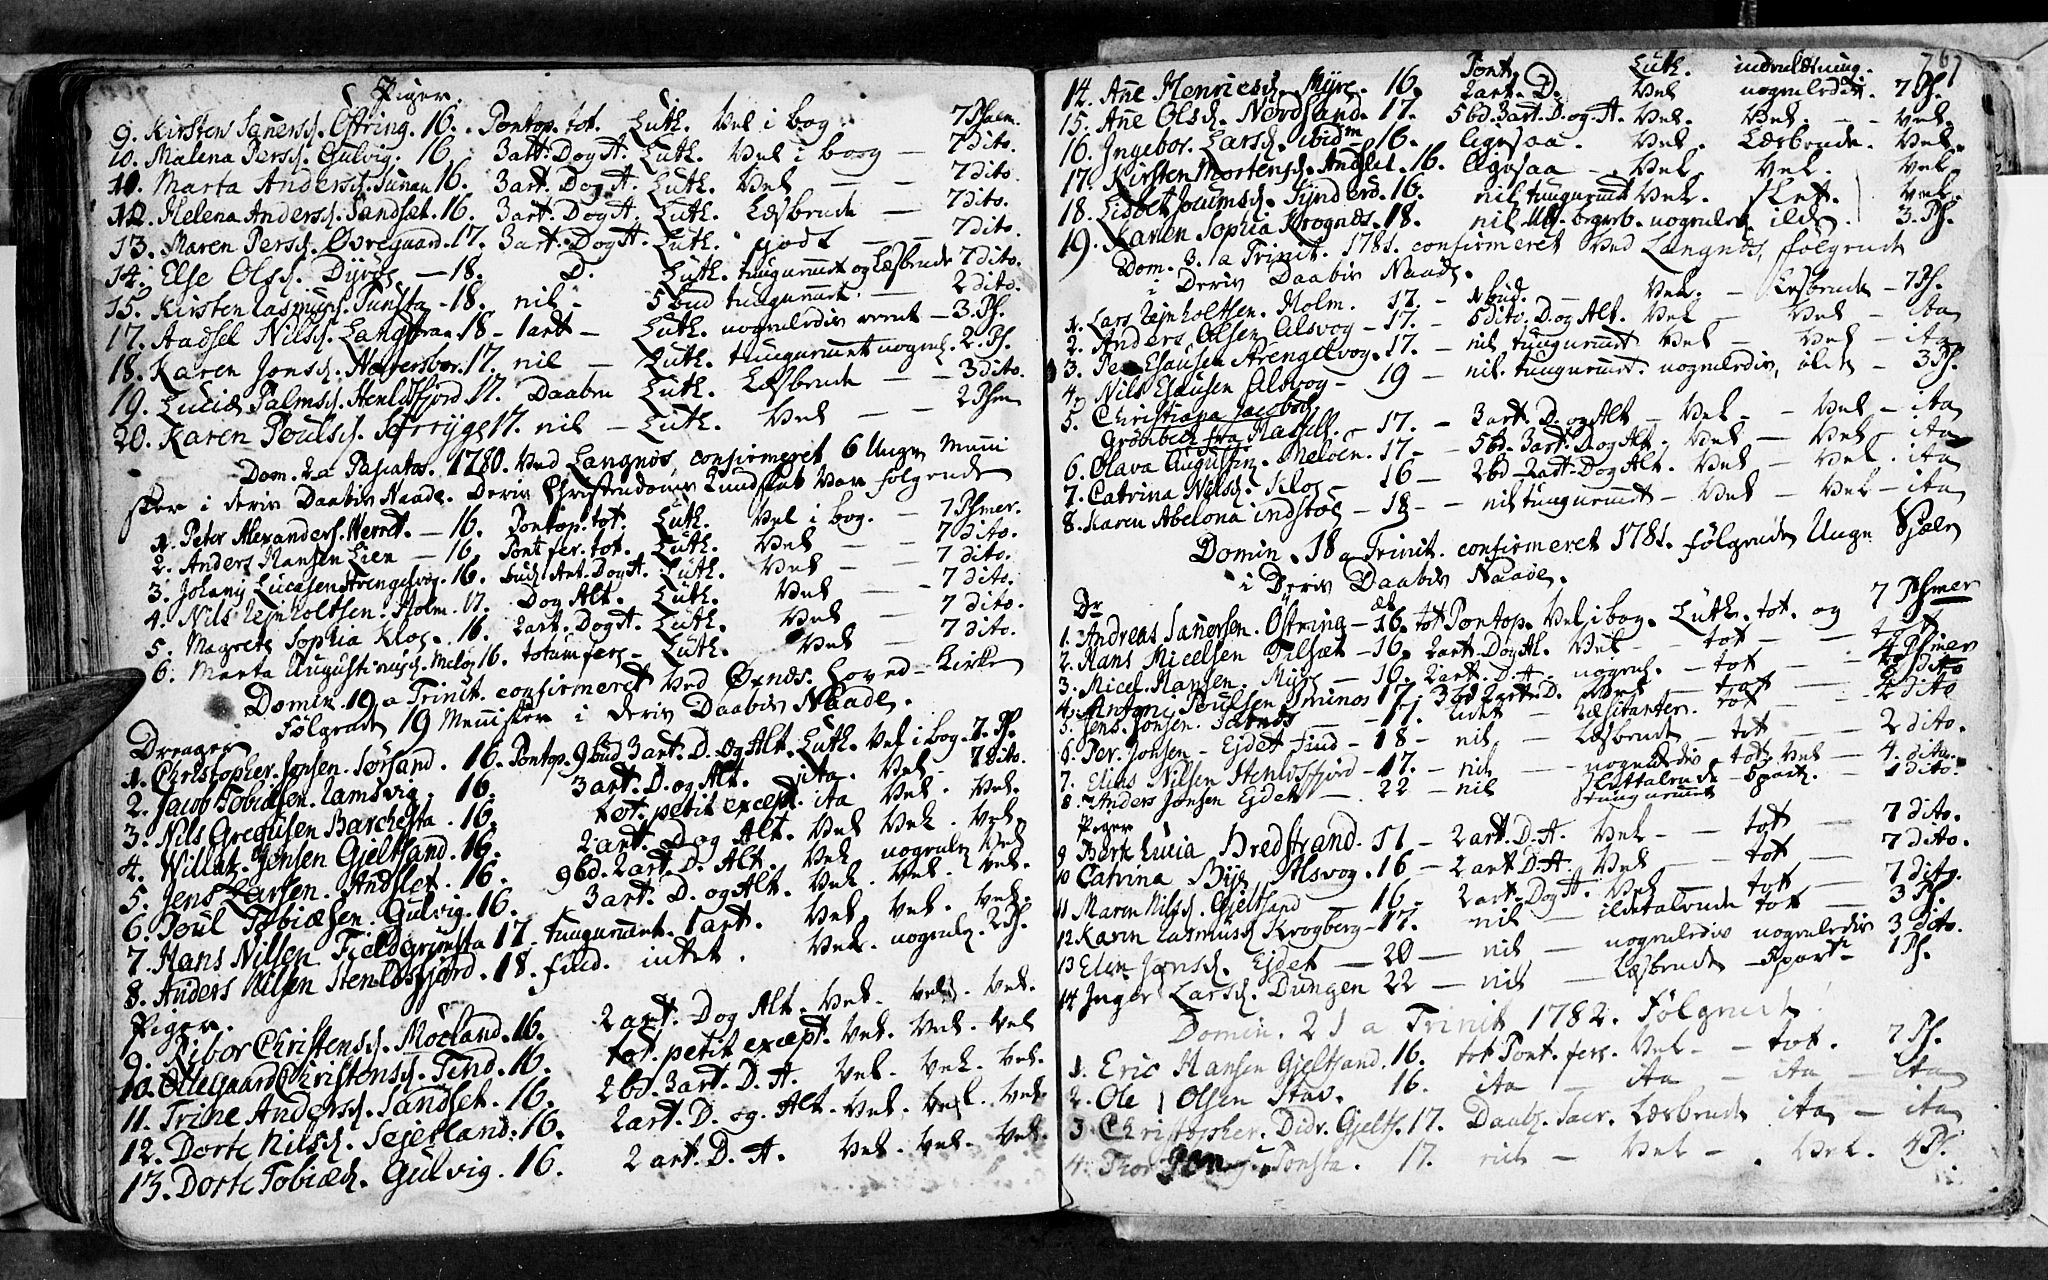 Piger.
9. Kirsten Sanersd. Østring. 16. Pontop. tot. Luth. Vel i bog. 7 Psalm.
10. Malena Persd. Gulvig. 16. 3 art. D og A. Luth. Vel i bog — 7 dito.
11. Marta Andersd. 16. 3 art. D og A. Luth. Vel — 7 dito.
12. Helena Andersd. Sandset. 16. 3 art. D og A. Luth. Læsbende — 7 dito.
13. Maren Persd. Øvregaard. 17. 3 art. D og A. Luth. godt — 7 dito.
14. Else Olsd. Dyrøe — 18. D. Luth. tungnemt og Læsbende 7 dito.
15. Kirsten Rasmusd. Tunsta — 18. nil. 5 bud tungnemt. — 2 dito.
17. Aadsel Nilsd. Langstran — 18 — 1 art — Luth. nogenledis nemt — 3. Ps.
18. Karen Jonsd. 17. nil — Luth. tungnemt nogenl. 2. Ps.
19. Lucia Palmsd. Stenlsfjord. 17. Daaben Luth. Læsbende — 3 dito.
20. Karen Poulsd. 17. nil — Luth. Vel — 2 Psm
Dom. 2 a Pascatos. 1780. Ved Langnes, confirmeret 6 Unge Menni
sker i deris Daabis Naade. Deris Christendoms Kundskab var følgende
1. Peter Alexanders. — 16. Pontop. tot. Luth. Vel i bog. — 7 Psmer.
2. Anders Hansen Lien — 16. Pont fer. tot. Luth. Vel — 7 dito.
3. Johanis Lucasen Strengelvog. 16. bud. Art. D og A. Luth. Vel — 7 dito.
4. Nils Rejnholtsen. Holm. 17. D og Alt. Luth. Vel — 7 dito.
5. Magrete Sophia Kloe. 16. 2 art. D og A. Luth. Vel — 7 dito.
6. Marta Augustinusd. Meløe 16. totum fere — Luth. Vel — 7 dito.
Domin. 19 a Trinit. confirmeret Ved Øxnds. Hoved-Kirke
Følgende 19 Mennisker i deris Daabis Naade.
Drenger
1. Christopher. Jonsen. Sørsand. 16. Pontop. 9 bud 3 art. D. og Alt. Luth. Vel i bog. 7. Ps.
2. Jacob Tobiæsen. Ramsvig. 16. 3 art. D. og Alt. ita. Vel — 7 dito.
3. Nils Gregusen Barchesta. 16. tot. petit except. ita Vel. Vel.
4. Willatz. Jonsen Gjeltsand. 16. 2 art. D og Alt. Vel Vel. Vel.
5. Jens Larsen. Andslet. 16. 9 bd. 2 art. D. Alt. Vel nogenl. Vel
6. Poul Tobiæsen. Gulvig. 16. 3 art. D. og Alt. Vel. Vel. Vel.
7. Hans Nilsen Fieldgrunsta 17. tungnemt. 1 art. Vel Vel. Vel.
8. Anders Nilsen Stenlsfjord. 18. find. intet. Vel. nogenl. 2 Ps.
Piger.
9. Zibor Christensd. Mocland. 16. 2 art. D og Alt. Vel. Vel. Vel.
10. Ollegaard Christensd. Tind. 16. tot. petit except. Vel. Vel. Vel
11. Trine Andersd. Sandset. 16. 2 bd. 3 art. D. A. Vel. Vel. Vel.
12. Dorte Nilsd. Sejerland. 16. 2 art. D. og. Alt. Vel. Vel. Vel.
13. Dorte Tobiæd. Gulvig. 16. 2 art. D. A. Vel. Vel. Vel.
767
Pont. Luth. indenlæsning.
14. Ane Henricsd. Myre. 16. 2 art. D. Vel nogenledis. 7 Ps.
15. Ane Olsd. Nordsand. 17. 5 bd. 3 art. D. og A. Vel. Vel. — Vel.
16. Ingebor. Larsd. ibidm. 16. ligesaa. Vel. Læsbende. Vel.
17. Kirsten Mortensd. Andslet. 16. ligesaa — Vel Vel. Vel
18. Lisbet Joumsd. 16. nil tungnemt Vel. slet. Vel.
19. Karen Sophia Krognæs. 18. nil nogenled. ilde. 3. Ps.
Dom. 3. a Trinit. 1781. confirmeret Ved Langnæs, følgende
i Deris Daabis Naade.
1. Lars Rejnholtsen. Holm. 17. — 1 bud. — Vel. — Læsbende — 7 Ps.
2. Anders Olsen Alsvog — 17. — 5 dito. D. og Alt. Vel — Vel — ita
3. Per Esausen Strengelvog. 17. — nil tungnemt Vel — Vel — ita
4. Nils Esausen Alsvog — 19 — nil. tungnemt. nogenledis, ilde — 3 Ps.
5. Christiana Jacobsd.
Grønbech fra Hassell. — 17. — 3 art. D. og Alt — Vel — Vel — ita
6. Olava Augustin. Meløen. 17 — 5 b. 3 art. D. og Alt. Vel — Vel — ita
7. Catrina Nilsd. Kloe — 16 — 2 bd 2 art. D og Alt. Vel — Vel. ita
8. Karen Abelona indstøe — 18 — nil tungnemt — Vel — Vel — ita
Domin. 18 a Trinit. confirmeret 1781. følgende Unge Sjæle
i Deris Daabis Naade.
Dr
1. Andreas Sanersen. Østring — æt. 16. tot Pontop. Vel i bog. Luth. tot. og 7 Psmer
2. Hans Micelsen Tilsæt — 16. 2 art. D og Al. Vel — tot — tot
3. Micel. Hansen. Myre — 16. 2 art. D. A. nogenl. — tot — 4 Psmer
4. Antoni Poulsen Sminos 17. 3 bd 2 art. D. Vel — tot — dito
5. Jens Jonsen. — 17. lidt — Læsitanter. tot — 2 dito
6. Per. Jonsen — Ejdet find — 18 — nil — Læsbende — tot — 2 dito.
7. Elias Nilsen Stenlsfjord — 17. — nil — nogenledis tot. Vel — 4. dito.
8. Anders Jonsen Ejdet — 22 — nil tungnemt Spart. — 1 dito.
Piger
9 Berte Lucia Bredstrand. 17 — 2 art. D. A. Vel — tot — 7 dito.
10 Catrina Alsvog. 16 — 2 art D. A. Vel — tot — 7 dito.
11 Maren Nilsd. Gjeltsand — 16. — 2 art. D og A. Vel — tot — 7 dito.
12 Karen Rasmusd Krogberg — 17. nil — ildetalende tot — 3 Ps.
13 Elen Jonsd. Ejdet — 20 — nil — nogenledis nogenledis 3 dito.
14 Inger Larsd. Dungen 22 — nil — Læsbende — Spart — 1 Ps.
Domin. 21 a Trinit 1782. Følgende
1. Eric Hansen Gjeltsand. 16. tot Pont. fere. Vel — tot. 7 Ps.
2. Ole Olsen Stav. 16. ita — ita — ita — ita
3. Christopher. Didr. Gjelts. 17. Daab. Sacr. Læsbende ita — ita
4. Thor Tonsta. 17. nil — Vel — Vel. 4 Ps.